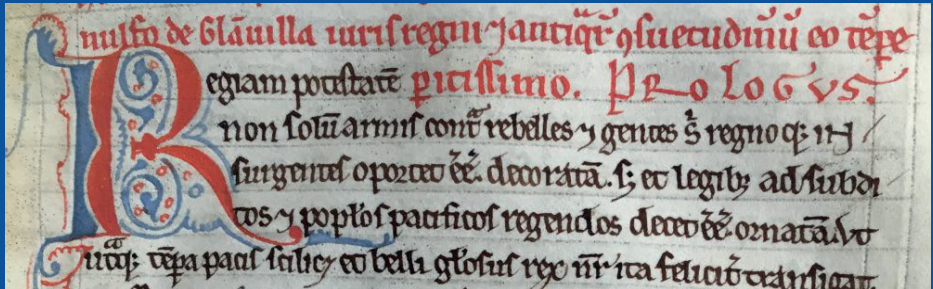 nulfo de Glãuilla iuris regni ⁊ antiqͣrͬ ꝯsuetudinũ eo tẽpe
Regiam potestatẽ ꝑitissimo. PRoLoGVS.
non solũ armis contͣ rebelles ⁊ gentes s̾ regnoqꝫ in
surgentes oportet ẽẽ. decoratã. sꝫ et legibꝫ ad subdi
tos ⁊ popłos pacificos regendos decet ẽẽ. ornatã. Vt
utͣqꝫ tẽpa pacis scilicꝫ et belli głosus rex nr̃ ita felicit̾ transigat.